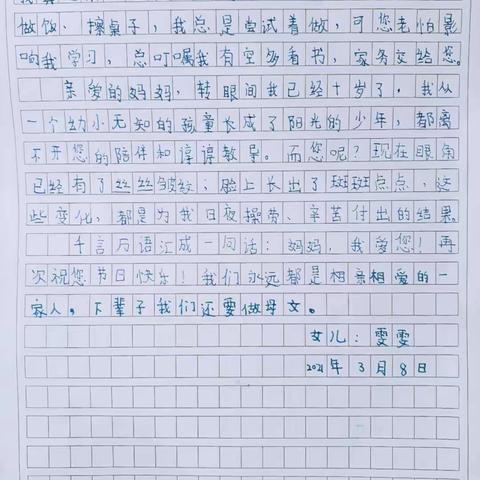 做饭、擦桌子，我总是尝试着做，可您老怕影
响我学习，总叮嘱我有空多看书，家务交给您。
亲爱的妈妈，转眼间我已经十岁了。我从
一个幼小无知的孩童长成了阳光的少年，都离
不开您的陪伴和谆谆教导。而您呢？现在眼角
已经有了丝丝皱纹；脸上长出了斑斑点点，这
些变化，都是为我日夜操劳、辛苦付出的结果
千言万语汇成一句话：妈妈，我爱您！再
次祝您节日快乐！我们永远都是相亲相爱的一
家人，下辈子我们还要做母女。
女儿：雯雯
2021年3月8日